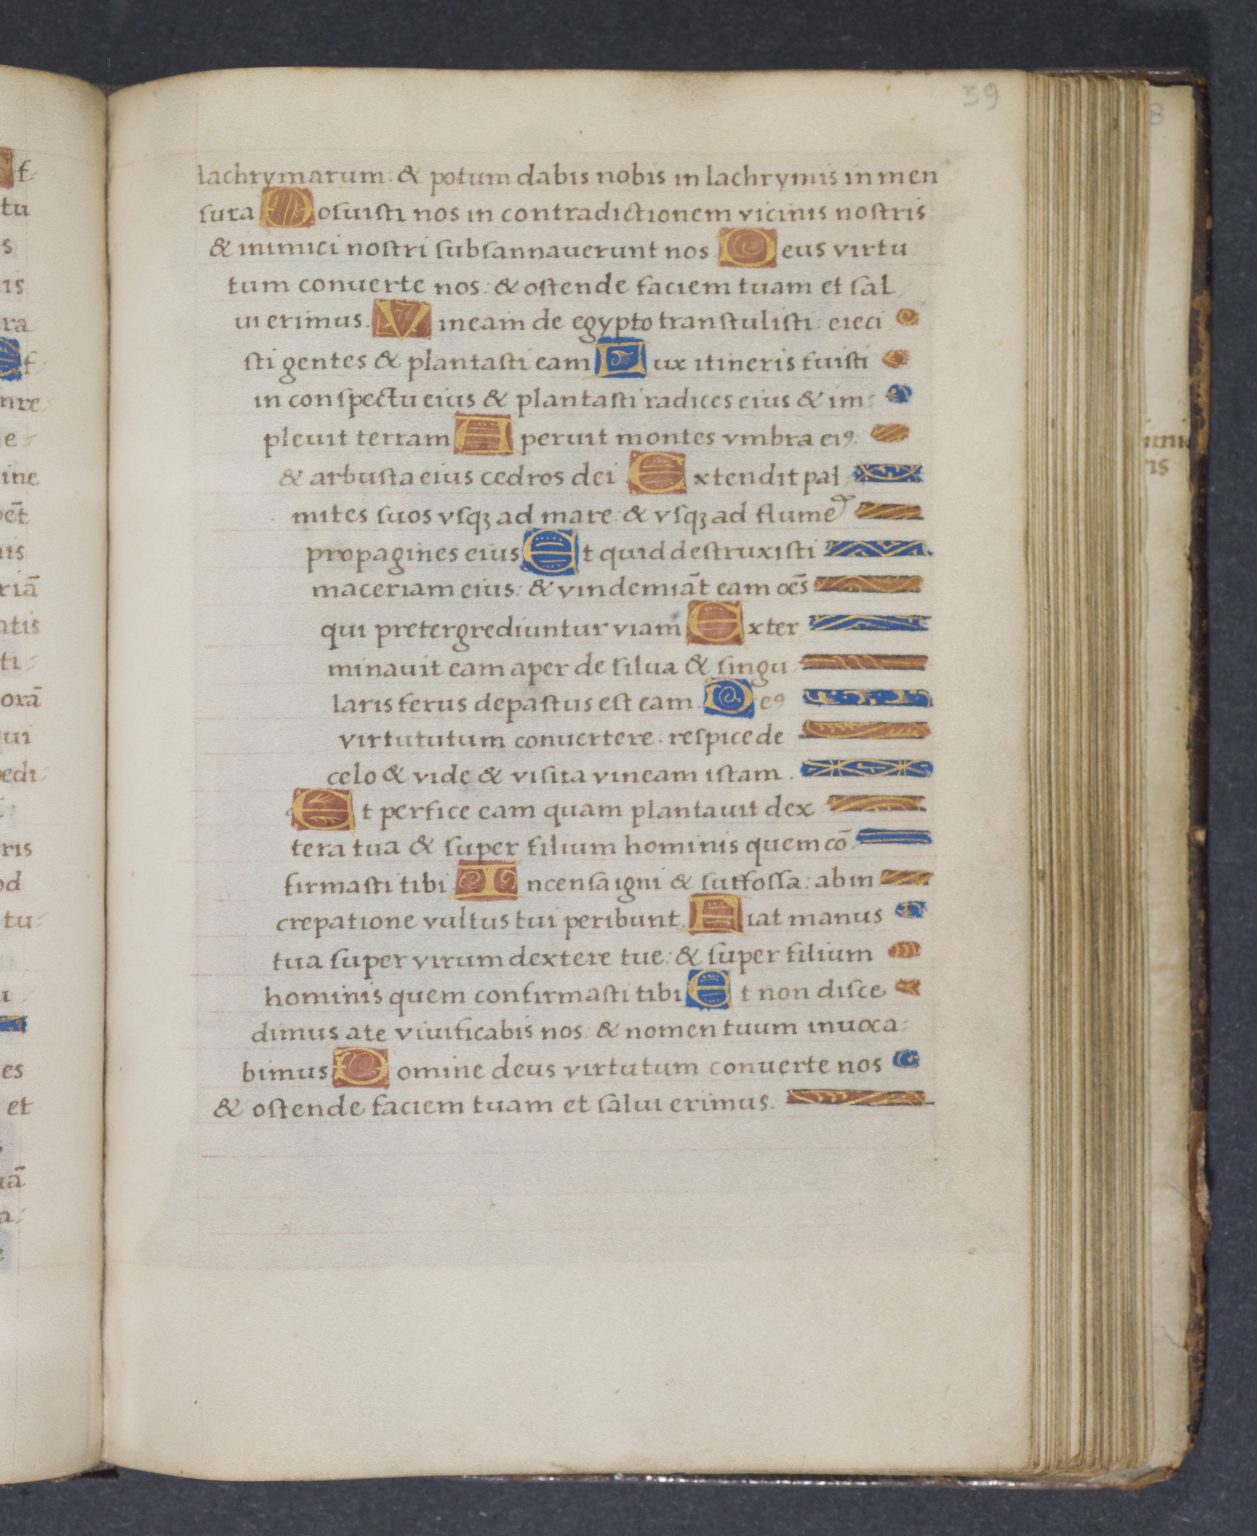 39
lachrymarum: & potum dabis nobis in lachrymis in men
sura Posuisti nos in contradictionem vicinis nostris
& inimici nostri subsannauerunt nos Deus virtu
tum conuerte nos: & ostende faciem tuam et sal
ui erimus. Vineam de egypto transtulisti: eieci
sti gentes & plantasti eam Dux itineris fuisti
in conspectu eius & plantasti radices eius & im-
pleuit terram Aperuit montes vmbra ei9:
& arbusta eius cedros dei Extendit pal
mites suos vsqꝫ ad mare: & vsqꝫ ad flumē
propagines eius Et quid destruxisti
maceriam eius: & vindemiāt eam oēs
qui pretergrediuntur viam Exter
minauit eam aper de silua & singu
laris ferus depastus est eam. De9
virtututum conuertere: respice de
celo & vide & visita vineam istam.
Et perfice eam quam plantauit dex
tera tua & super filium hominis quem cō
firmasti tibi Incensa igni & suffossa: ab in
crepatione vultus tui peribunt. Fiat manus
tua super virum dextere tue: & super filium
hominis quem confirmasti tibi Et non disce
dimus a te viuificabis nos: & nomen tuum inuoca-
bimus Domine deus virtutum conuerte nos
& ostende faciem tuam et salui erimus.